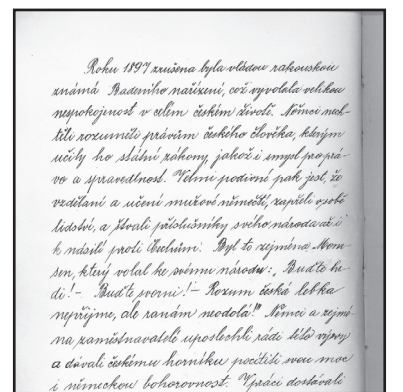 Roku 1897 zrušena byla vládou rakouskou
známá Badeniho nařízení, což vyvolala velikou
nespokojenost v celém českém životě. Němci nech-
těli rozuměti právům českého člověka, kterým
učily ho státní zákony, jakož i smysl pro prá-
vo a spravedlnost. Velmi podivné pak jest, že
vzdělaní a učení mužové němečtí, zapřeli v sobě
lidství, a štvali příslušníky svého národa až i
k násilí proti Čechům. Byl to zejména Mom-
sen, který volal ke svému národu:, Buďte tv-
dí! - Buďte svorni! - Rozum česká lebka
nepřijme, ale ranám neodolá!" Němci a zejmé-
na zaměstnavatelé uposlechli rádi této výzvy
a dávali českému horníku pocítiti svou moc
i německou bohorovnost. V práci dostávali